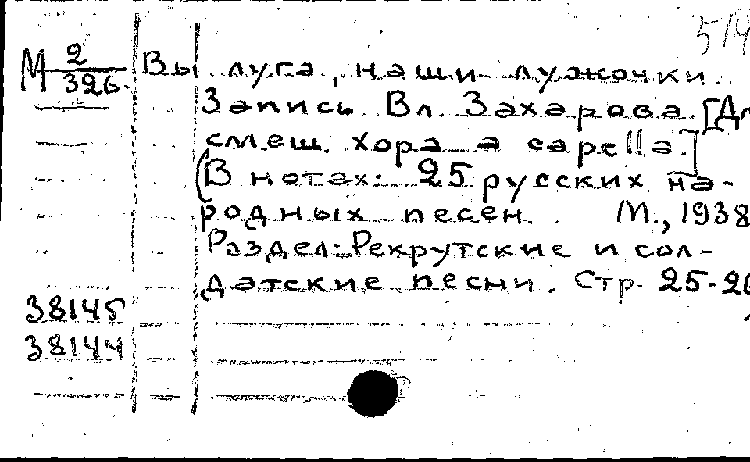 519
М 2/326. Вы луга, наши лужочки.
Запись Вл. Захарова. [Дл
смеш. хора a capella.]
(В нотах: 25 русских на-
родных песен. М., 1938
Раздел: Рекрутские и сол-
датские песни. Стр. 25-26
38145
38144